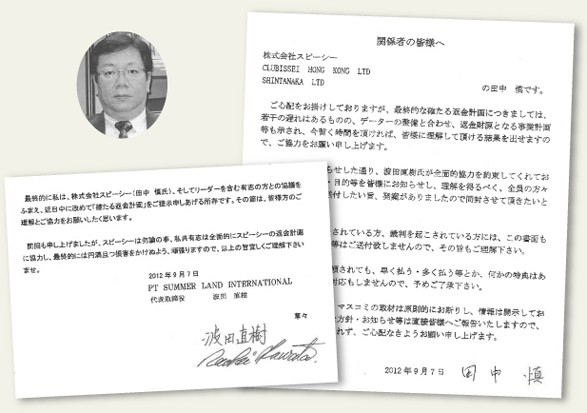 関係者の皆様へ
株式会社スピーシー
CLUBISSEI HONG KONG LTD
SHINTANAKA LTD
の田中 慎です。
ご心配をお掛けしておりますが、最終的な確たる返金計画につきましては、
若干の遅れはあるものの、データーの整備と合わせ、返金財源となる事業計画
等も示され、今暫く時間を頂ければ、皆様に理解して頂ける結果を出せますの
で、ご協力をお願い申し上げます。
らせした通り、波田直樹氏が全面的協力を約束してくれてお
・目的等を皆様にお知らせし、理解を得るべく、全員の方々
送付したい旨、発案がありましたので同封させて頂きたいと
されている方、裁判を起こされている方には、この書面も
等はご送付致しませんので、その旨もご理解下さい。
頼されても、早く払う・多く払う等とか、何かの特典はあ
対応もしませんので、予めご了承下さい。
マスコミの取材は原則的にお断りし、情報は開示してお
方針・お知らせ等は直接皆様へご報告いたしますので、
れず、ご心配なきようお願い申し上げます。
2012年9月7日 田中 慎
最終的に私は、株式会社スピーシー(田中 慎氏)、そしてリーダーを含む有志の方との協議を
ふまえ、近日中に改めて「確たる返金計画」をご提示申しあげる所存です。その節は、皆様方のご
理解とご協力をお願いしたく思います。
前回も申し上げましたが、スピーシーは勿論の事、私共有志は全面的にスピーシーの返金計画
に協力し、最終的には円満且つ損害をかけぬよう、頑張りますので、以上の旨宜しくご理解下さい
ませ。
2012年9月7日
PT SUMMER LAND INTERNATIONAL
代表取締役 波田 直樹
草々
波田直樹